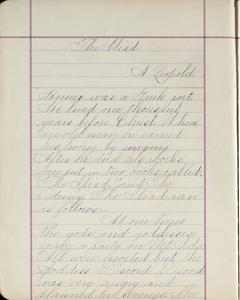 The Iliad
A Leopold
Homer was a Greek poet
He lived one thousand
years before Christ. When
an old man he earned
his living by singing.
After he died his works
were put in two books called,
"The Iliad," and "The
Odyssey. The Iliad ran
as follows.
At one time
the gods and goddesses
gave a party on Mt. Ida
All were invited but the
Goddess Discord. Discord
was very angry and
planned her revenge. She